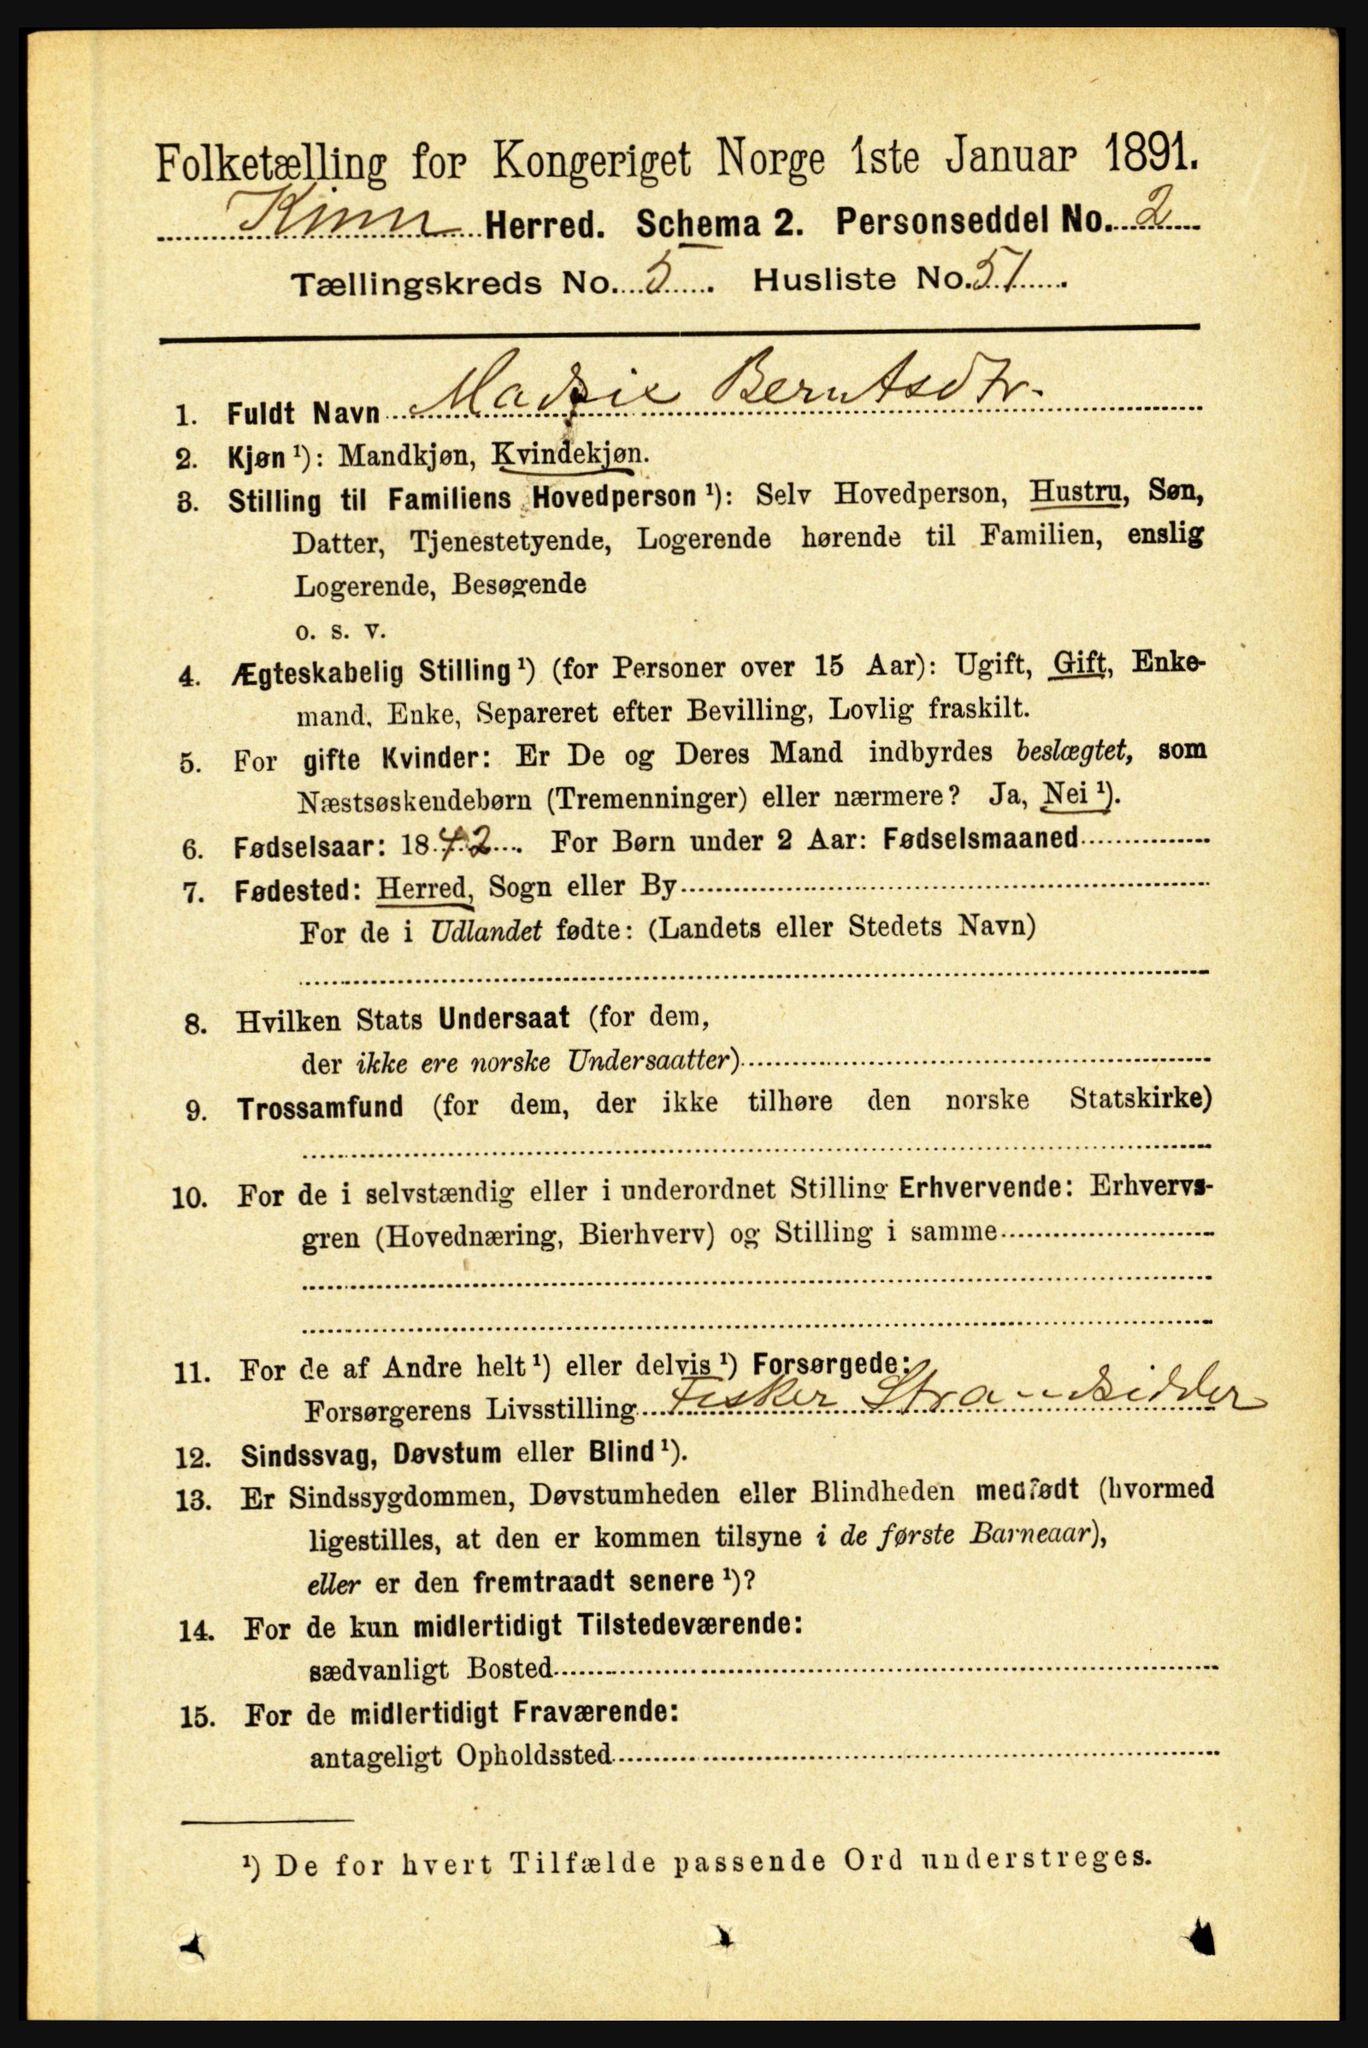 Folketælling for Kongeriget Norge 1ste Januar 1891.
Kinn Herred. Schema 2. Personseddel No. 2
Tællingskreds No. 5. Husliste No. 51
1. Fuldt Navn Berntsdtr.
2. Kjøn ¹): Mandkjøn, Kvindekjøn.
3. Stilling til Familiens Hovedperson ¹): Selv Hovedperson, Hustru, Søn,
Datter, Tjenestetyende, Logerende hørende til Familien, enslig
Logerende, Besøgende
o. s. v.
4. Ægteskabelig Stilling ¹) (for Personer over 15 Aar): Ugift, Gift, Enke-
mand, Enke, Separeret efter Bevilling, Lovlig fraskilt.
5. For gifte Kvinder: Er De og Deres Mand indbyrdes beslægtet, som
Næstsøskendebørn (Tremenninger) eller nærmere? Ja, Nei ¹).
6. Fødselsaar: 1842. For Børn under 2 Aar: Fødselsmaaned
7. Fødested: Herred, Sogn eller By
For de i Udlandet fødte: (Landets eller Stedets Navn)
8. Hvilken Stats Undersaat (for dem,
der ikke ere norske Undersaatter)
9. Trossamfund (for dem, der ikke tilhøre den norske Statskirke)
10. For de i selvstændig eller i underordnet Stilling Erhvervende: Erhvervs-
gren (Hovednæring, Bierhverv) og Stilling i samme
11. For de af Andre helt ¹) eller delvis ¹) Forsørgede:
Forsørgerens Livsstilling Fisker Strandsidder
12. Sindssvag, Døvstum eller Blind ¹).
13. Er Sindssygdommen, Døvstumheden eller Blindheden medfødt (hvormed
ligestilles, at den er kommen tilsyne i de første Barneaar),
eller er den fremtraadt senere ¹)?
14. For de kun midlertidigt Tilstedeværende:
sædvanligt Bosted
15. For de midlertidigt Fraværende:
antageligt Opholdssted
¹) De for hvert Tilfælde passende Ord understreges.